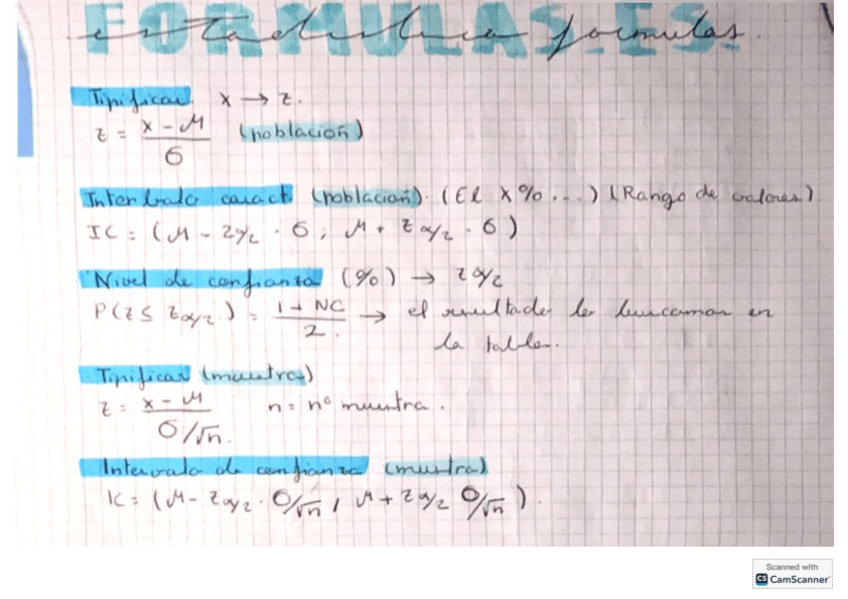 FORMULAS.ES.
estadistica formulas.
Tipificar. x → z.
z = x - μ / σ (población)
Interbalo caract. (población). (El x% ...) (Rango de valores)
IC = (μ - zα/2 · σ ; μ + zα/2 · σ)
Nivel de confianza (%) → zα/2
P(z ≤ zα/2) = 1 + NC / 2 → el resultado lo buscamos en
la tabla.
Tipificar (muestra)
z = x - μ / σ/√n. n = nº muestra.
Intervalo de confianza (mustra)
IC = (μ - zα/2 · σ/√n , μ + zα/2 σ/√n).
Scanned with
CS CamScanner